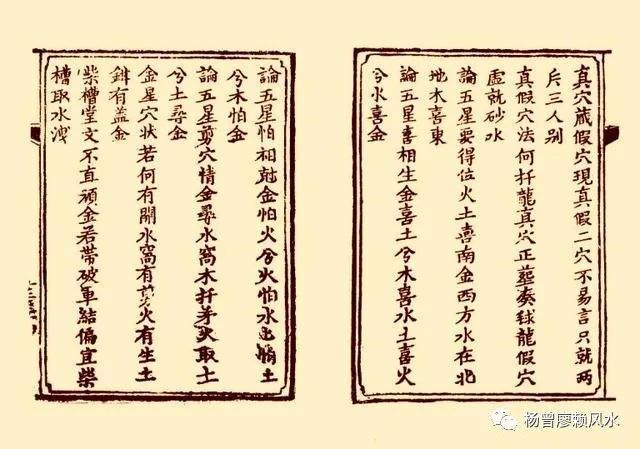 真穴蔵假穴現真假二穴不易言只就两
斥三人别
真假穴法何扦龍真穴正葬奏毬龍假穴
虚就砂水
論五星要得位火土喜南金西方水在北
地木喜東
論五星喜相生金喜土兮木喜水土喜火
兮水喜金
論五星怕相尅金怕火兮火怕水怕土
兮木怕金
論五星剪穴情金尋水窩木扦芽火取土
兮土尋金
金星穴状若何有開水窩有剪火有生土
有盖金
柴槽堂文不直頑金若帶破軍結偏宜柴
槽取水洩
杨曾廖赖风水